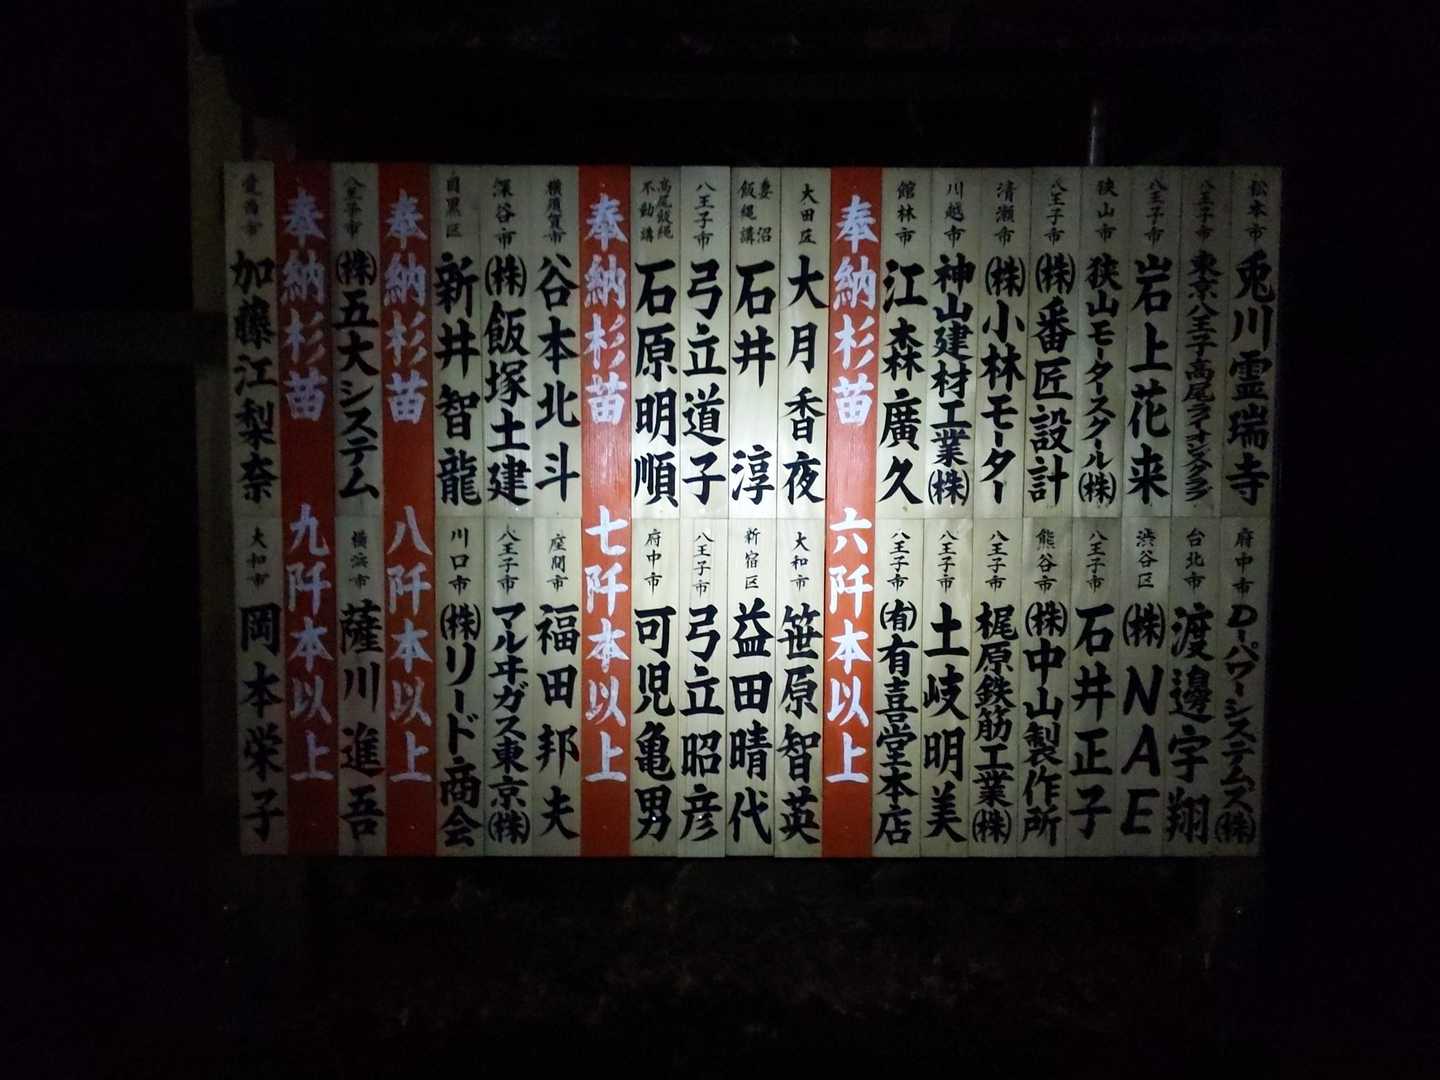 松本市 兎川霊瑞寺
府中市 Dーパワーシステムズ㈱
八王子市 東京八王子高尾ライオンズクラブ
台北市 渡邊宇翔
八王子市 岩上花来
渋谷区 ㈱NAE
狭山市 狭山モータースクール㈱
八王子市 石井正子
八王子市 ㈱番匠設計
熊谷市 ㈱中山製作所
清瀬市 ㈱小林モーター
八王子市 梶原鉄筋工業㈱
川越市 神山建材工業㈱
八王子市 土岐明美
館林市 江森廣久
八王子市 ㈲有喜堂本店
奉納杉苗 六阡本以上
大田区 大月香夜
大和市 笹原智英
妻沼飯縄講 石井淳
新宿区 益田晴代
八王子市 弓立道子
八王子市 弓立昭彦
高尾飯縄不動講 石原明順
府中市 可児亀男
奉納杉苗 七阡本以上
横須賀市 谷本北斗
座間市 福田邦夫
深谷市 ㈱飯塚土建
八王子市 マルヰガス東京㈱
目黒区 新井智龍
川口市 ㈱リード商会
奉納杉苗 八阡本以上
八王子市 ㈱五大システム
横浜市 薩川進吾
奉納杉苗 九阡本以上
加藤江梨奈
大和市 岡本栄子